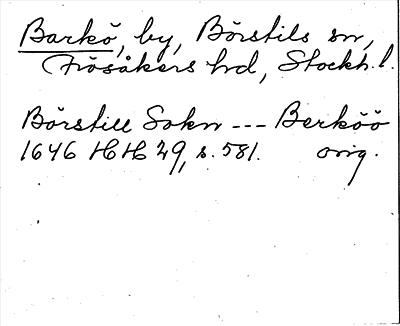 Barkö, by, Börstils sn,
Frösåkers hd, Stockh. l.
Börstill Sokn --- Berköö
1646 HH 29, s. 581. orig.